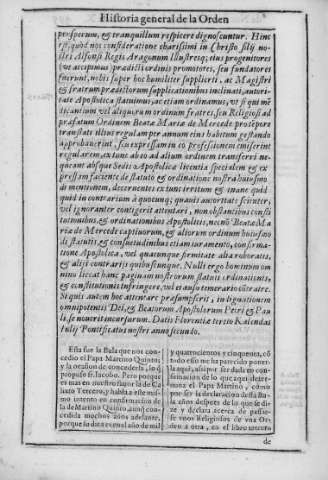 Historia general de la Orden
prosperum, & tranquillum respicere dignoscuntur. Hinc
est, quod nos consideratione charissimi in Christo filij nostri
Alfonsi Regis Aragonum Illustris, eius progenitores
(ut accepimus) prædicti ordinis promotores, seu fundatores
fuerunt, nobis super hoc humiliter supplicti, ac Magistri
& fratrum prædictorum supplicationibus inclinati, auctoritate
Apostolica statuimus, ac etiam ordinamus, ut si qui mēdicantium
vel aliquorum ordinum fratres, seu Religiosi ad
præfatum Ordinem Beatæ Mariæ de Mercede prosperè
translati illius regularem per annum eius habitum gestando
approbaverint, seu expressam in eo professionem emiserint
regularem, ex tunc ab eo ad alium ordinem transferri nequeant
absque Sedis Apostolicæ licentia speciali &
expressam faciente de statuto & ordinatione nostra huiusmodi
mentionem, decernentes ex tunc irritum & inane quid
quid in contrarium à quocunq; quavis auctoritate scienter,
vel ignoranter contigerit attentari, non obstantibus constitutionibus,
& ordinationibus Apostolicis, necnō Beatæ Mariæ
de Mercede captivorum, & aliorum ordinum huiusmodi
statutis, & consuetudinibus etiam iuramento, confirmatione
Apostolica, vel quacunque firmitate alia roboratis,
& alijs contrarijs quibuscunque. Nulli ergo hominum omnino
liceat hanc paginam nostrorum statuti ordinationis,
& constitutionis infringere, vel ei ausu temerario cōtraire.
Siquis autem hoc attentare præsumpserit, indignationem
omnipotentis Dei, & Beatorum Apostolorum Petri & Pauli,
se noverit incursurum. Datis Florentiæ tertio Kalendas
Iulij Pontificatus nostri anno secundo.
Esta fue la Bula que nos concedio
el Papa Martino Quinto,
y la ocasion de concederla, lo q̄
propuso fr. Iacobo. Pero porque
es mas en nuestro favor la de Calixto
Tercero, y habla a este mismo
intento en confirmacion de
la de Martino Quinto, aunq̄ concedida
muchos años adelante,
porque su data es en el año de mil
y quatrocientos y cinquenta, cō
todo esso me ha parecido ponerla
aqui, assi por ser dada en
confirmacion de lo que aqui determina
el Papa Martino, como
por ser la declaracion desta Bula
años despues de lo que se dize
y declara acerca de passarse
unos Religiosos de una Orden
a otra, en el libro tercero
de